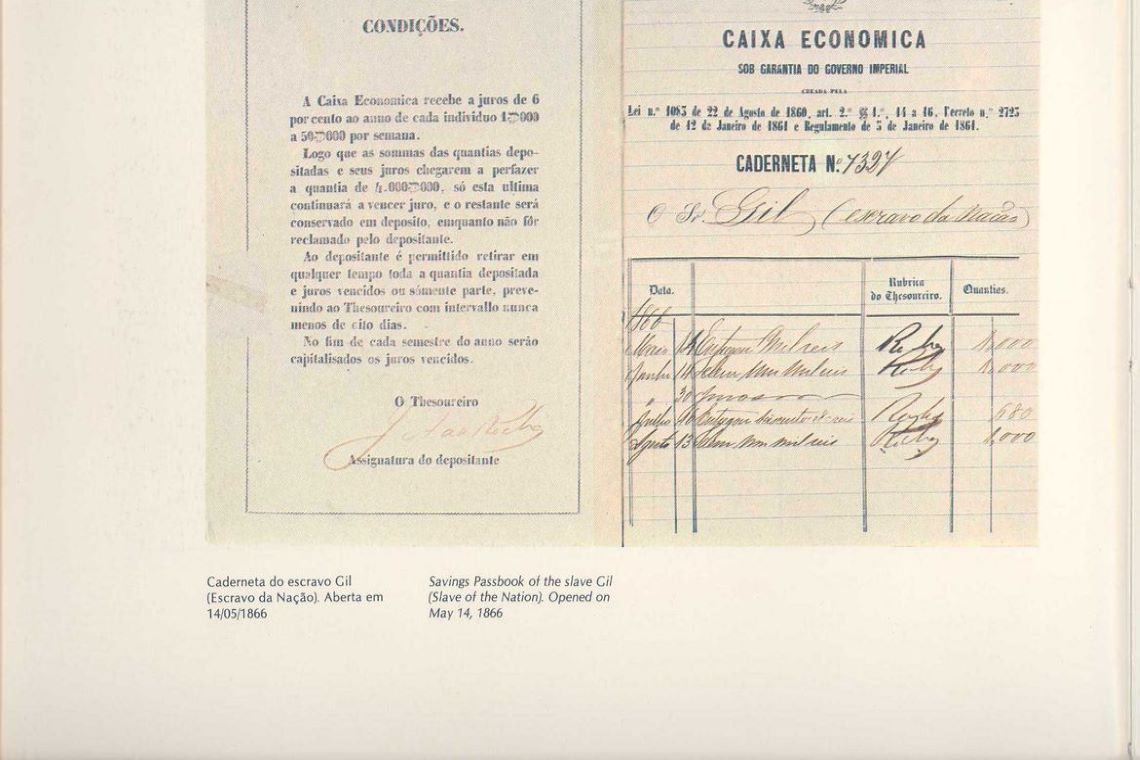 CONDIÇÕES.
A Caixa Economica recebe a juros de 6
por cento ao anno de cada individuo 1$000
a 50$000 por semana.
Logo que as sommas das quantias depo-
sitadas e seus juros chegarem a perfazer
a quantia de 4.000$000, só esta ultima
continuará a vencer juro, e o restante será
conservado em deposito, emquanto não fôr
reclamado pelo depositante.
Ao depositante é permittido retirar em
qualquer tempo toda a quantia depositada
e juros vencidos ou sómente parte, preve-
nindo ao Thesoureiro com intervallo nunca
menos de oito dias.
No fim de cada semestre do anno serão
capitalisados os juros vencidos.
O Thesoureiro
Assignatura do depositante
CAIXA ECONOMICA
SOB GARANTIA DO GOVERNO IMPERIAL
CREADA PELA
Lei n.º 1083 de 22 de Agosto de 1860, art. 2.º §§ 1.º, 14 a 16, Decreto n.º 2723
de 12 de Janeiro de 1861 e Regulamento de 5 de Janeiro de 1861.
CADERNETA N.º 4327
O Sr. Gil (escravo da Nação)
Data. Rubrica do Thesoureiro. Quantias.
1866
14 mil reis 1,000
Junho Idem um mil reis 1,000
" 30 Juros
Julho 680
Agosto 13 Idem um mil reis 1,000
Caderneta do escravo Gil
(Escravo da Nação). Aberta em
14/05/1866
Savings Passbook of the slave Gil
(Slave of the Nation). Opened on
May 14, 1866